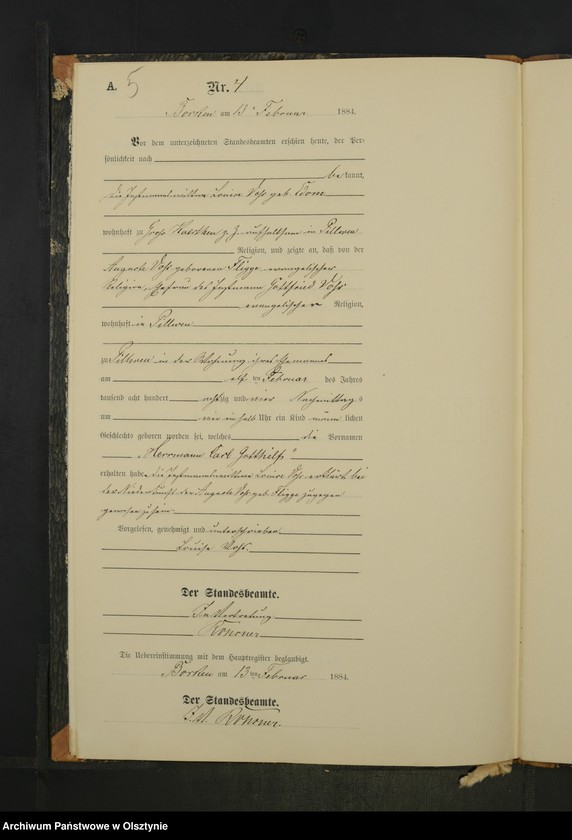 A. 5 Nr. 4
Borken am 13ten Februar 1884.
Vor dem unterzeichneten Standesbeamten erschien heute, der Per-
sönlichkeit nach
be kannt,
die Instmannswittwe Louise Voss geb.
wohnhaft zu Groß z. Z. aufhaltsam in
Religion, und zeigte an, daß von der
Auguste Voss geborenen Fligge evangelischer
Religion, Ehefrau des Instmann Gottfried Voss
evangelischer Religion,
wohnhaft in
zu in der Wohnung ihres Ehemannes
am elf ten Februar des Jahres
tausend acht hundert achtzig und vier Nachmittag s
um vier ein halb Uhr ein Kind männ lichen
Geschlechts geboren worden sei, welches die Vornamen
„Herrmann Carl Gotthilf“
erhalten habe. Die Instmannswittwe Louise Voss erklärt bei
der Niederkunft der Auguste Voss geb. Fligge zugegen
gewesen zu sein.
Vorgelesen, genehmigt und unterschrieben
Louise Voss.
Der Standesbeamte.
In Vertretung
Die Uebereinstimmung mit dem Hauptregister beglaubigt.
Borken am 13ten Februar 1884.
Der Standesbeamte.
I. V.
Archiwum Państwowe w Olsztynie